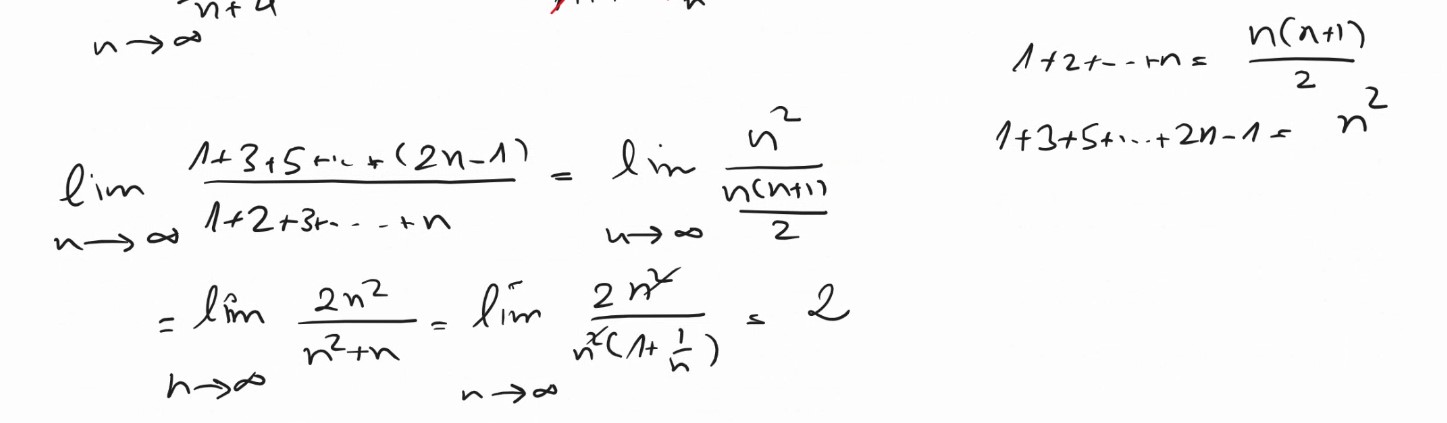 n+4
n→∞
1+2+--+n = n(n+1)/2
1+3+5+...+2n-1 = n²
lim n→∞ (1+3+5+...+(2n-1))/(1+2+3+....+n) = lim n→∞ n²/(n(n+1)/2)
= lim n→∞ 2n²/(n²+n) = lim n→∞ 2n²/(n²(1+1/n)) = 2